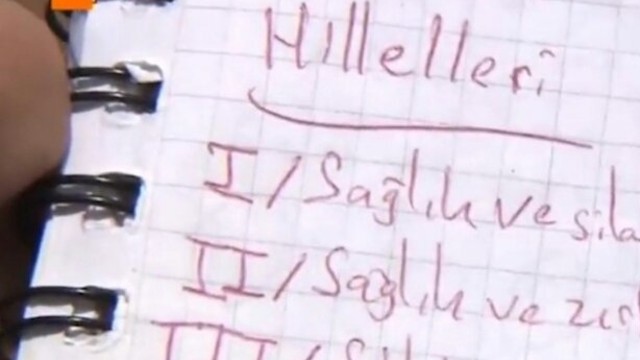 Hıllelleri
I/Sağlık ve sila
II/Sağlık ve
III/